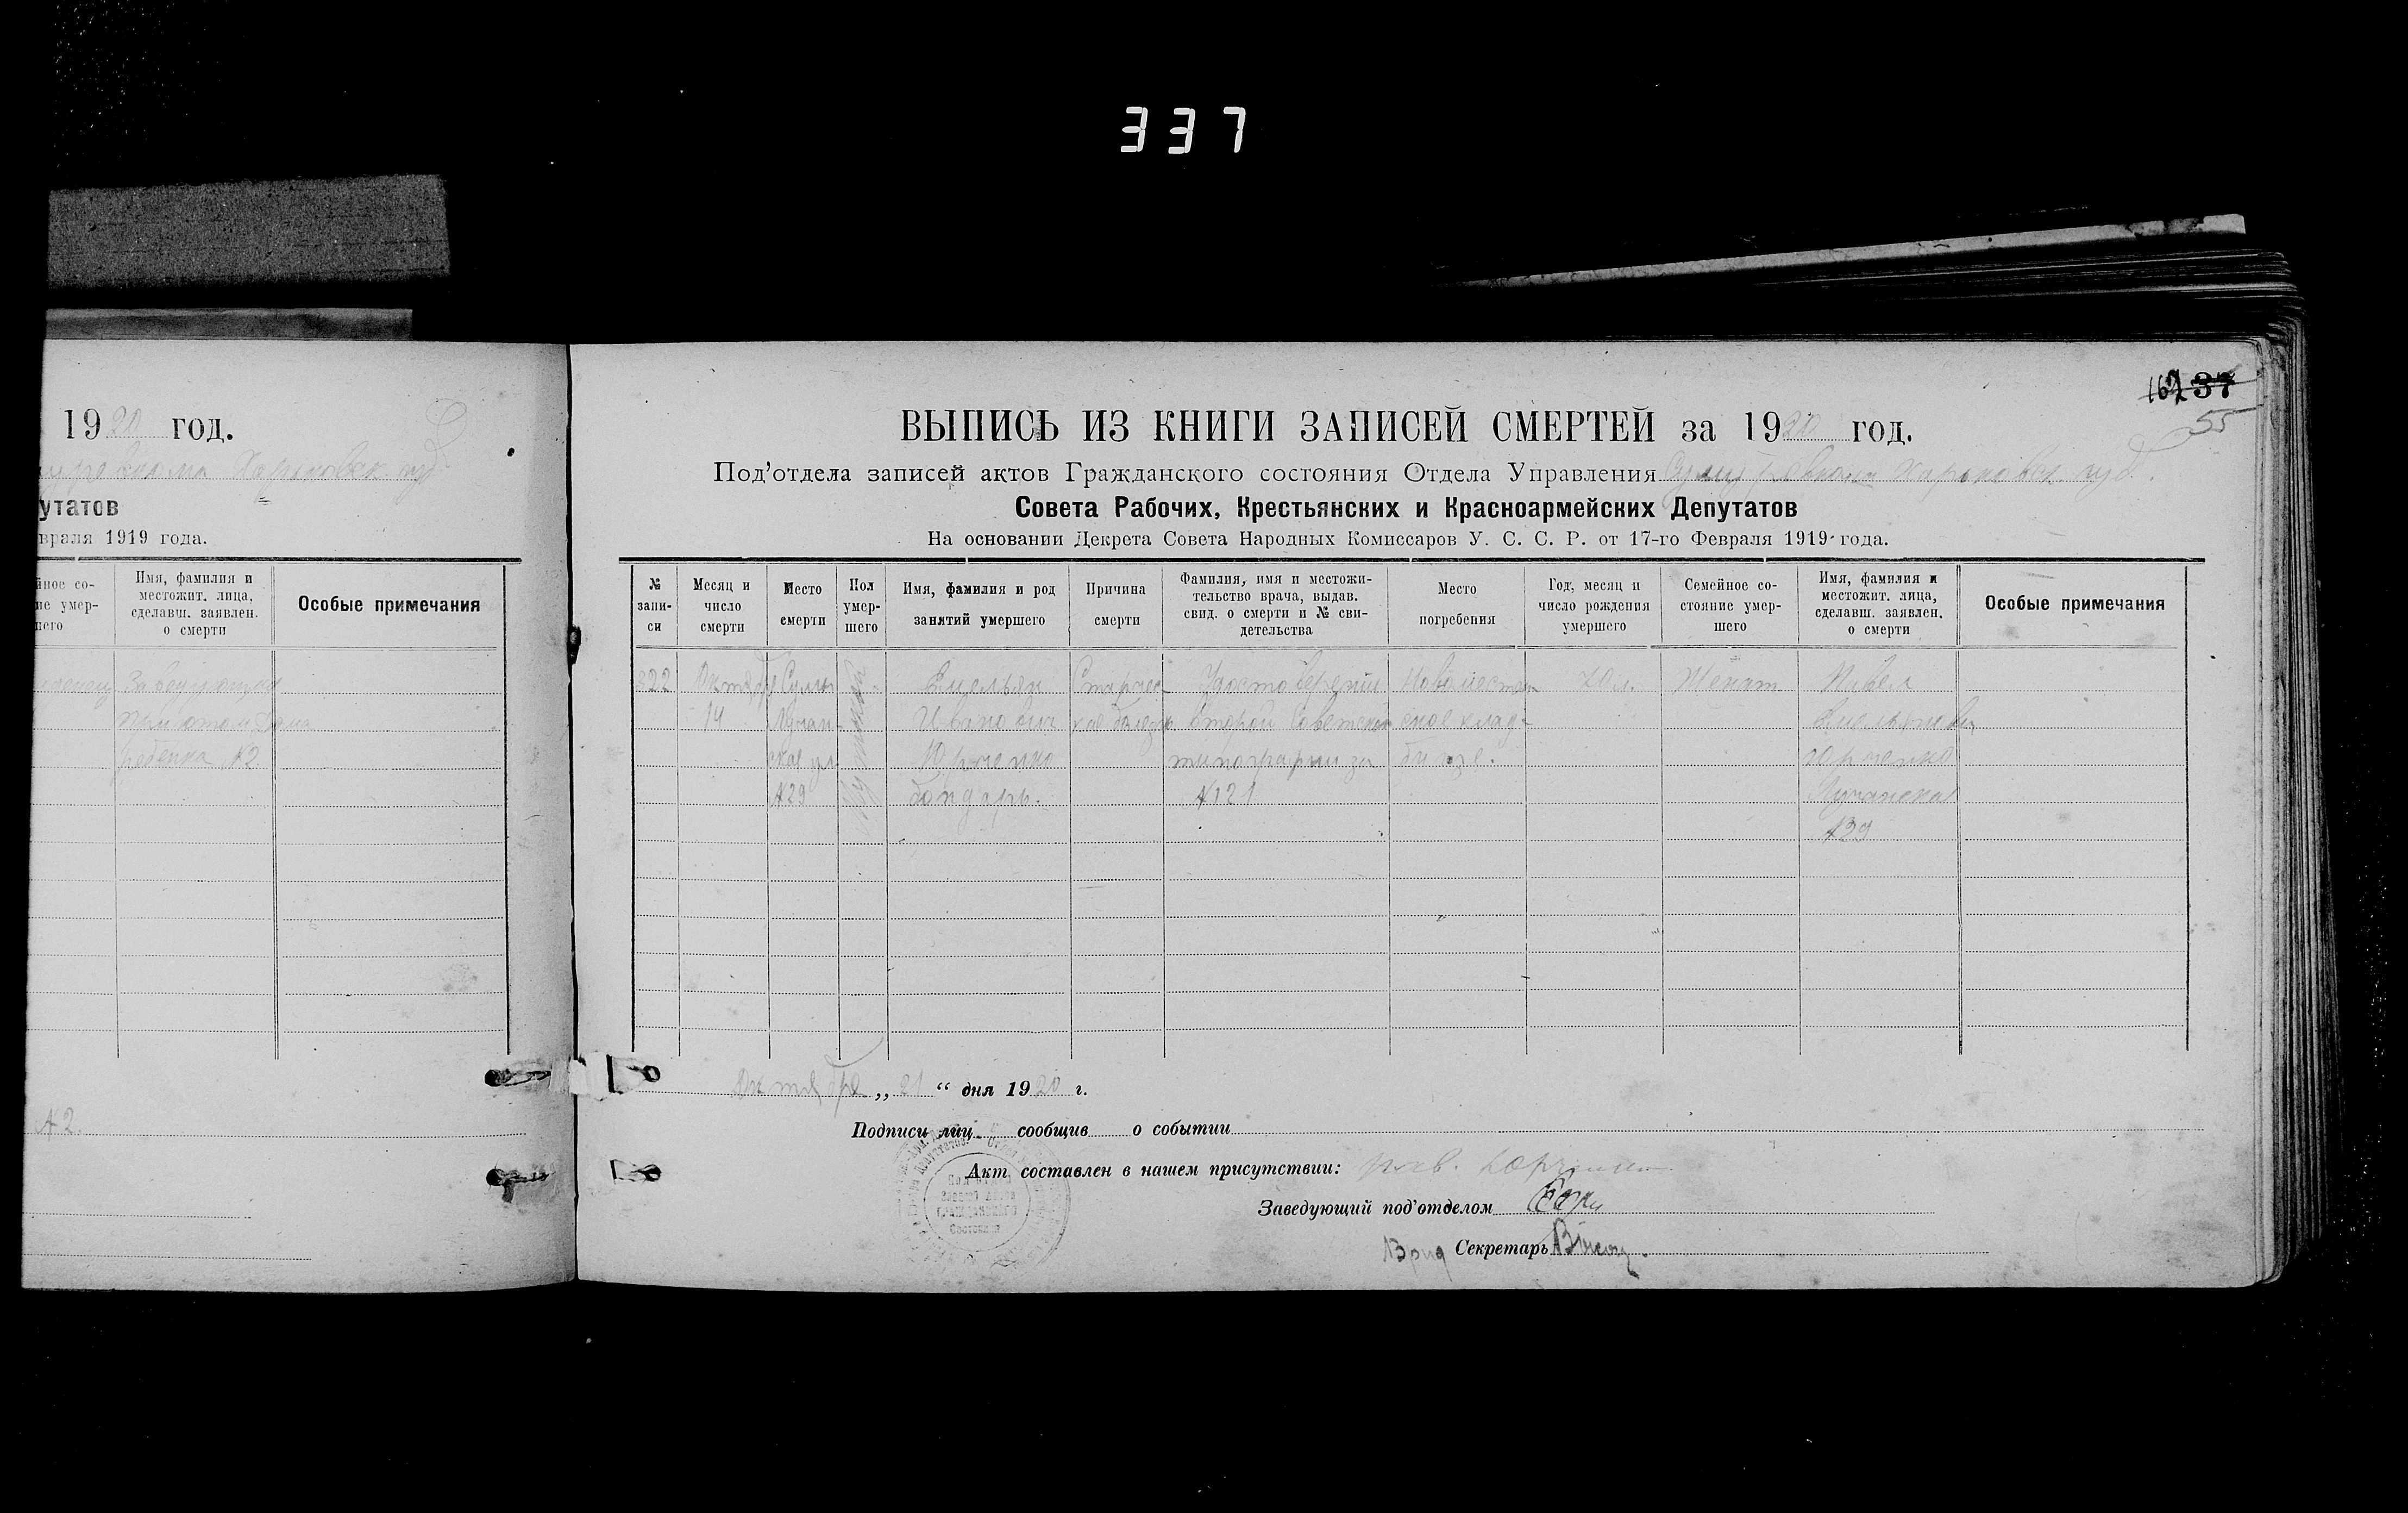 337
1920 год.
Харьковск. губ
утатов
враля 1919 года.
йное со-
ие умер-
шего
Имя, фамилия и
местожит. лица,
сделавш. заявлен.
о смерти
Особые примечания
Заведующий
приютом Дома
ребенка №2
№2.
162 37
55
ВЫПИСЬ ИЗ КНИГИ ЗАПИСЕЙ СМЕРТЕЙ за 1920 год.
Под'отдела записей актов Гражданского состояния Отдела Управления Суму Ревкома Харьковск. губ.
Совета Рабочих, Крестьянских и Красноармейских Депутатов
На основании Декрета Совета Народных Комиссаров У. С. С. Р. от 17-го Февраля 1919 года.
№
запи-
си
Месяц и
число
смерти
Место
смерти
Пол
умер-
шего
Имя, фамилия и род
занятий умершего
Причина
смерти
Фамилия, имя и местожи-
тельство врача, выдав.
свид. о смерти и № сви-
детельства
Место
погребения
Год, месяц и
число рождения
умершего
Семейное со-
стояние умер-
шего
Имя, фамилия и
местожит. лица,
сделавш. заявлен.
о смерти
Особые примечания
322
Октября
14
Сумы
Лучан-
ская ул
№29
Мужской
Емельян
Иванович
Юрченко
бондарь.
Старчес-
кая болезнь
Удостоверение
второй Советской
типографии за
№121
Новоместен-
ское клад-
бище.
70 л.
Женат
Павел
Емельянович
Юрченко
Лучанская
№29
Октября „21“ дня 1920 г.
Подписи лиц сообщив о событии
Акт составлен в нашем присутствии:
Заведующий под'отделом
Врид Секретарь